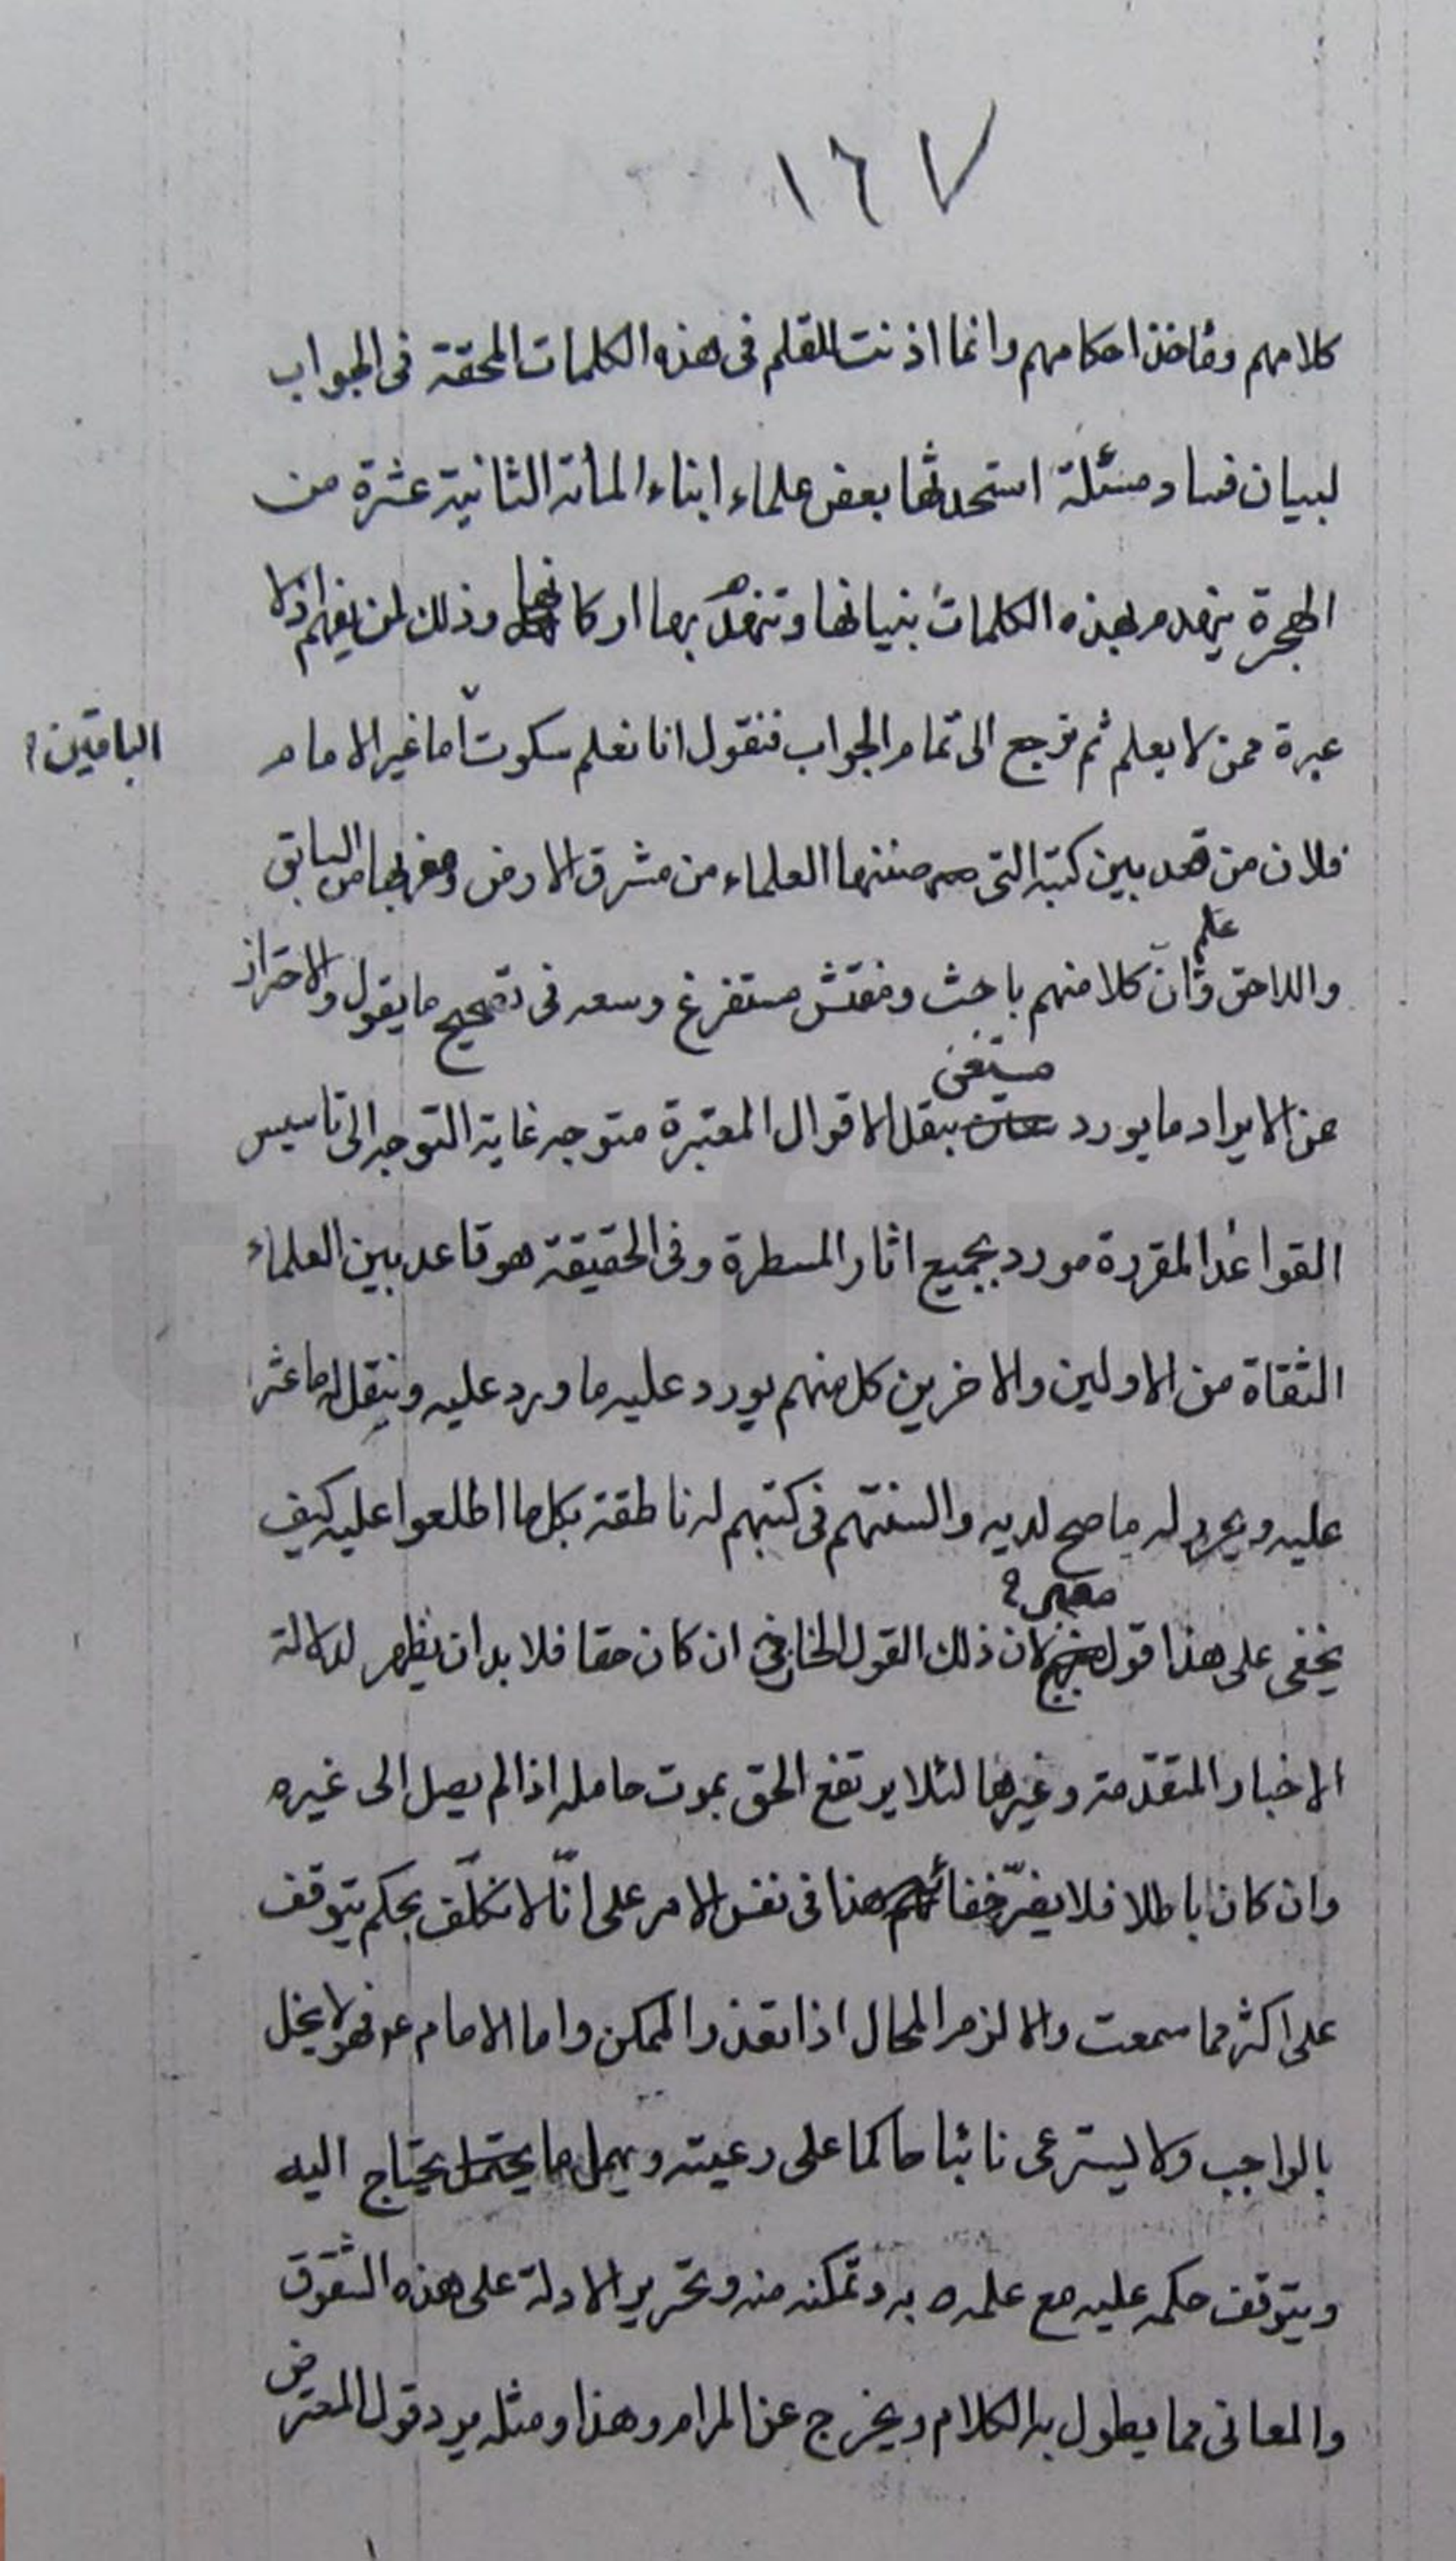 ١٦٧
كلامهم ومٔاخذ احكامهم وانما اذنت للقلم فى هذه الكلمات المحققة فى الجواب
لبيان فساد مسئلة استحدثها بعض علماء ابناء المأته الثانية عشرة من
الهجرة ينهدم بهذه الكلمات بنيانها وتنهدّ بها اركانها وذلك لمن يفهم اذ لا
عبرة ممن لا يعلم ثم نرجع الى تمام الجواب فنقول انا نعلم سكوت اما غير الامام
الباقين
فلان من قعد بين كتبه التى صنفها العلماء من مشرق الارض ومغربها من السابق
واللاحق وعلم انّ كلا منهم باحث ومفتش مستفرغ وسعه فى تصحيح ما يقول والاحتراز
عن الايراد ما يورد مستغن بنقل الاقوال المعتبرة متوجه غاية التوجه الى تاسيس
القواعد المقررة مورد بجميع اثار المسطرة وفى الحقيقة هو قاعد بين العلماء
الثقاة من الاولين والاخرين كل منهم يورد عليه ما ورد عليه وينقل له ما عثر
عليه ويحرر له ما صح لديه والسنتهم فى كتبهم له ناطقة بكل ما اطلعوا عليه كيف
يخفى على هذا قول لان ذلك القول الخافى ان كان حقا فلا بد ان يظهر لدلالة
الاخبار المتقدمة وغيرها لئلا يرتفع الحق بموت حامله اذا لم يصل الى غيره
وان كان باطلا فلا يضرّ خفائه هذا فى نفس الامر على انّا لا نكلّف بحكم يتوقف
على اكثر مما سمعت والا لزم المحال اذا تعذر الممكن واما الامام ع فهو لا يخل
بالواجب ولا يسترعى نائبا حاكما على رعيته ويهمل ما يحتمل يحتاج اليه
ويتوقف حكمه عليه مع علمه به وتمكنه منه وتحرير الادلة على هذه الشقوق
والمعانى مما يطول به الكلام ويخرج عن المرام وهذا ومثله يرد قول المعترض